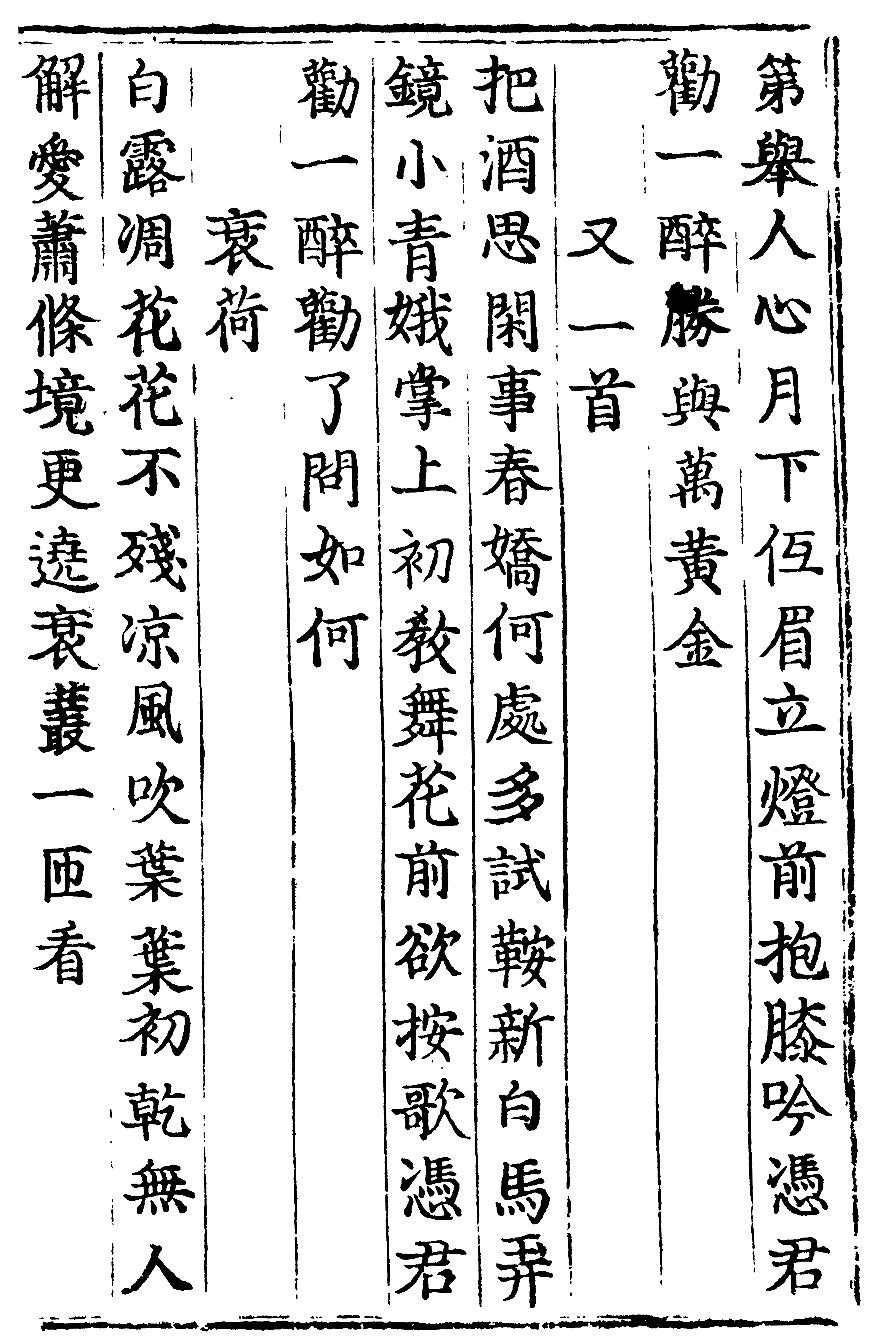 第舉人心月下仾眉立燈前抱膝吟憑君
勸一醉勝與萬黃金
又一首
把酒思閑事春嬌何處多試鞍新白馬弄
鏡小青娥掌上初教舞花前欲按歌憑君
勸一醉勸了問如何
衰荷
白露凋花花不殘凉風吹葉葉初乾無人
解愛蕭條境更遶衰叢一匝看